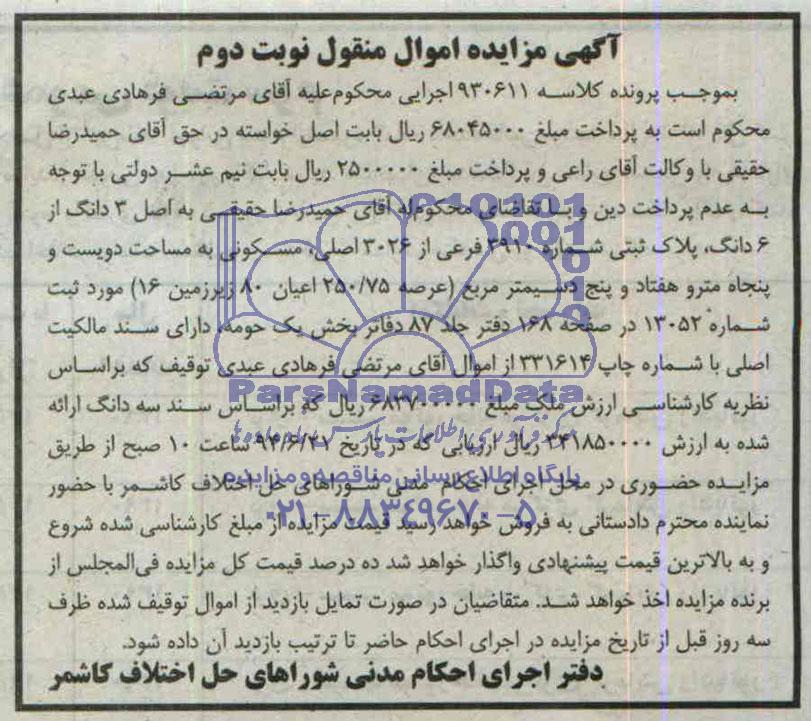 آگهی مزایده اموال منقول نوبت دوم
بموجب پرونده کلاسه ۹۳۰۶۱۱ اجرایی محکوم‌علیه آقای مرتضی فرهادی عبدی
محکوم است به پرداخت مبلغ ۶۸۰۴۵۰۰۰ ریال بابت اصل خواسته در حق آقای حمیدرضا
حقیقی با وکالت آقای راعی و پرداخت مبلغ ۲۵۰۰۰۰۰ ریال بابت نیم عشر دولتی با توجه
به عدم پرداخت دین و با تقاضای محکوم‌له آقای حمیدرضا حقیقی به اصل ۳ دانگ از
۶ دانگ، پلاک ثبتی شماره ۳۹۱۰ فرعی از ۳۰۲۶ اصلی، مسکونی به مساحت دویست و
پنجاه مترو هفتاد و پنج دسیمتر مربع (عرصه ۲۵۰/۷۵ اعیان ۸۰ زیرزمین ۱۶) مورد ثبت
شماره ۱۳۰۵۲ در صفحه ۱۶۸ دفتر جلد ۸۷ دفاتر بخش یک حومه، دارای سند مالکیت
اصلی با شماره چاپ ۳۳۱۶۱۴ از اموال آقای مرتضی فرهادی عبدی توقیف که براساس
نظریه کارشناسی ارزش ملک مبلغ ۶۸۳۷۰۰۰۰۰ ریال که براساس سند سه دانگ ارائه
شده به ارزش ۳۴۱۸۵۰۰۰۰ ریال ارزیابی که در تاریخ ۹۴/۶/۳۱ ساعت ۱۰ صبح از طریق
مزایده حضوری در محل اجرای احکام مدنی شوراهای حل اختلاف کاشمر با حضور
نماینده محترم دادستانی به فروش خواهد رسید قیمت مزایده از مبلغ کارشناسی شده شروع
و به بالاترین قیمت پیشنهادی واگذار خواهد شد ده درصد قیمت کل مزایده فی‌المجلس از
برنده مزایده اخذ خواهد شد. متقاضیان در صورت تمایل بازدید از اموال توقیف شده ظرف
سه روز قبل از تاریخ مزایده در اجرای احکام حاضر تا ترتیب بازدید آن داده شود.
دفتر اجرای احکام مدنی شوراهای حل اختلاف کاشمر
ParsNamadData
مرکز فرآوری اطلاعات پارس نماد داده ها
پایگاه اطلاع رسانی مناقصه و مزایده
۰۲۱-۸۸۳۴۹۶۷۰-۵